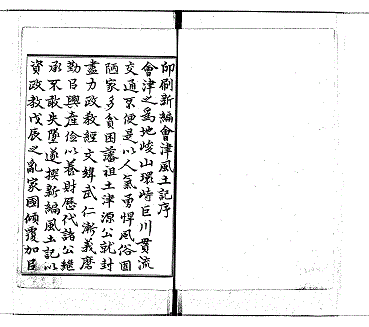 印刷新編會津風土記序
會津之爲地峻山環峙巨川貫流
交通不便是以人氣勇悍風俗固
陋家多貧困藩祖土津公就封
盡力政教經文緯武仁漸義磨
勤民興產儉以養財歷代諸公繼
承不敢失墜遂撰新編風土記以
資政教戊辰之亂家國傾覆加臣